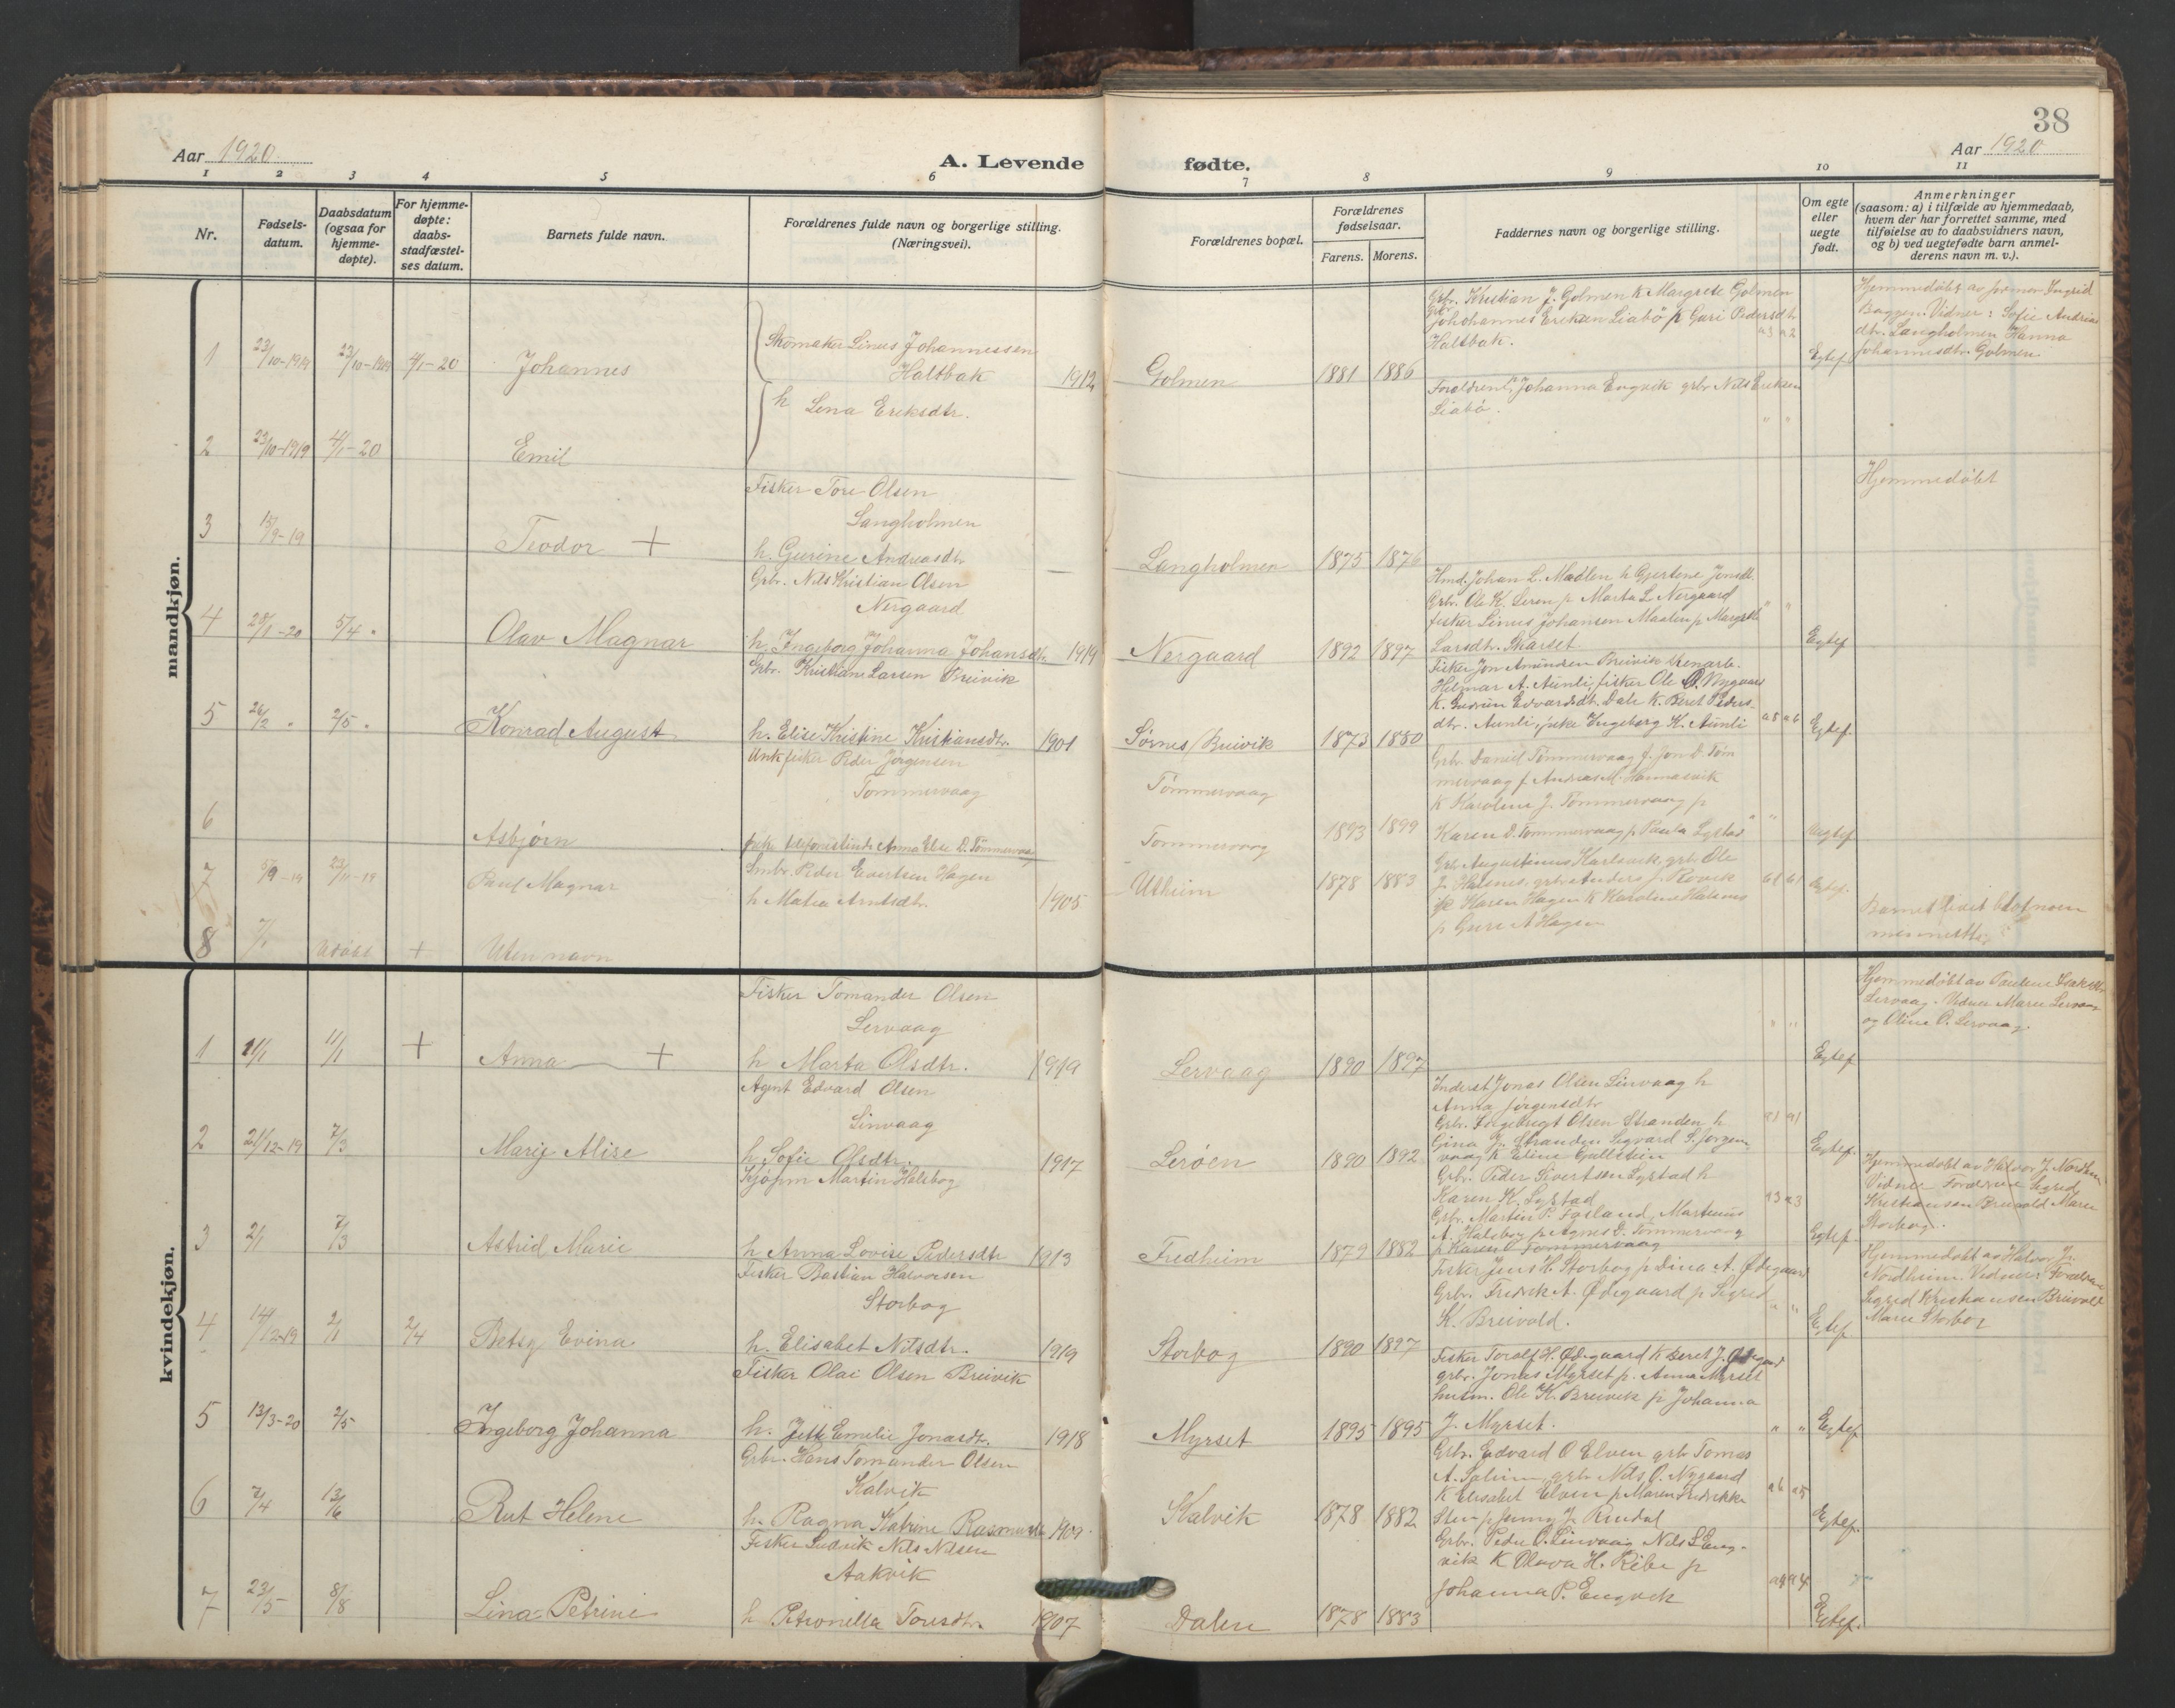 38
Aar 1920
A. Levende fødte.
Aar 1920
1 2 3 4 5 6 7 8 9 10 11
Nr.
Fødsels-
datum.
Daabsdatum
(ogsaa for
hjemme-
døpte).
For hjemme-
døpte:
daabs-
stadfæstel-
ses datum.
Barnets fulde navn.
Forældrenes fulde navn og borgerlige stilling.
(Næringsvei).
Forældrenes bopæl.
Forældrenes
fødselsaar.
Farens. Morens.
Faddernes navn og borgerlige stilling.
Om egte
eller
uegte
født.
Anmerkninger
(saasom: a) i tilfælde av hjemmedaab,
hvem der har forrettet samme, med
tilføielse av to daabsvidners navn,
og b) ved uegtefødte barn anmel-
derens navn m. v.).
mandkjøn.
1 23/10-1919 23/10-1919 4/1-20 Johannes
Skomaker Linus Johannessen
Haltbak
h Lena Eriksdtr.
1912 Golmen 1881 1886
Grbr. Kristian J. Golmen K Margrete Golmen
Johohannes Eriksen Liabö p Guri Pedersdtr
Haltbak.
a3 a2
Egtef
Hjemmedöbt av jormor Ingrid
Baggen. Vidner: Sofie Andrias
dtr. Langholmen Hanna
Johannesdtr. Golmen
2 23/10-1919 4/1-20 Emil
Foreldrene, Johanna Engvik grbr Nils Eriksen
Liabö.
" "
3 15/9-19 Teodor +
Fisker Tore Olsen
Langholmen
h. Gurine Andreasdtr
Langholmen 1875 1876
Hjemmedöbt
4 28/1-20 5/4 " Olav Magnar
Grbr. Nils Kristian Olsen
Nergaard
h. Ingeborg Johanna Johansdtr. 1919
Nergaard 1892 1897
Hmd. Johan L. Maalen h Gjertene Jonsdt.
Grbr. Ole K. Leren p Marta L Nergaard
fisker Linus Johansen Maalen p Margrethe
Larsdtr. Skarset
" "
Egtef
5 26/2 " 2/5 " Konrad August
Grbr. Kristian Larsen Breivik
h. Elise Kristine Kristiansdtr. 1901
Sörnes/Breivik 1873 1880
Fisker Jon Amundsen Breivik
Helmar A. Aunli, fisker Ole Nygaard
K. Gudrun Edvardsdt. Dale K. Beret Peders-
dtr. Aunli, pike Ingeborg K. Aunli
a8 a6
Egtef.
6 Asbjörn
Unk fisker Peder Jörgensen
Tommervaag
pike telefonistinde Anna Else D. Tömmervaag
Tömmervaag
Tommervaag
1893 1899
Grbr. Daniel Tömmervaag f. Jon D. Töm
mervaag f Andreas M. Hannasvik
K Karoline J. Tömmervaag p
Karen D. Tommervaag p Paula Lystad
" "
Uegtef
7 5/9-19 23/11-19 Paul Magnar
Smbr. Peder Evertsen Hagen
h Matea Arntsdtr. 1905
Utheim 1878 1883
Grbr Augustinus Karlsvik, grbr Ole
J. Halsnes, grbr Anders J. Rovik
Karen Hagen K Karoline Halsnes
p Guri A Hagen
61 61
Egtef.
8 7/1 udöbt + Uten navn
Barnet livet blot noen
kvindekjøn.
1 11/1 + Anna +
Fisker Tomander Olsen
Lervaag
h Marta Olsdtr. 1919
Lervaag 1890 1897
" "
Egtef
Hjemmedöbt av Pauline Isaksdtr
Lervaag. Vidner Maree Lervaag
og Oline O. Lervaag.
2 21/12-19 7/3 Marie Alise
Agent Edvard Olsen
Linvaag
h. Sofie Olsdtr. 1917
Leröen 1890 1892
Inderst Jonas Olsen Linvaag h
Anna Jörgensdtr
Grbr. Ingebrigt Olsen Stranden h
Gina J. Stranden Sigvard S. Jörgen
vaag K Elina Gullstein
a1 a1
Egtef.
3 2/1 7/3 Astrid Marie
Kjöpm Martin Halsbog
h Anna Lovise Pedersdtr 1913
Fredheim 1879 1882
Grbr. Peder Sivertsen Lystad h
Karen K. Lystad
Grbr. Martin P. Fosland, Martinus
A. Halsbog p Agnes E. Tömmervaag
p Karen O Tommervaag
a3 a3
Egtef.
Hjemmedöbt av Halvor J. Nordhim
Vidner Foreldrene Sigrid
Kristiansen Breivold Maree
Storbog.
4 14/12-19 2/1 2/4 Betsy Evina
Fisker Bastian Halvorsen
Storbog
h. Elisabet Nilsdtr. 1919
Storbog 1890 1897
Fisker Jens H. Storbog p Dina A. Ödegaard
Grbr. Fredrik A. Ödegaard p Sigrid
K. Breivold.
" "
Egtef
Hjemmedöbt av Halvor J.
Nordheim. Vidner: Foreldrene
Sigrid Kristiansen Breivold
Maree Storbog
5 13/3-20 2/5 Ingeborg Johanna
Fisker Olai Olsen Breivik
h. Jette Emelie Jonasdt. 1918
Myrset 1895 1895
Fisker Toralf H. Ödegaard K Beret J. Ödegaard
grbr. Jonas Myrset p. Anna Myrset
husm. Ole K. Breivik p Johanna
J. Myrset.
" "
Egtef
6 2/4 13/6 Rut Helene
Grbr. Hans Tomander Olsen
Kalvik
h. Ragna Katrine Rasmusdtr 1909.
Kalvik 1878 1882
Grbr. Edvard O Elven grbr Tomas
A. Solem, grbr Nils O. Nygaard
K Elisabet Elven p Maren Fredrikke
Sten p Jenny J. Rindal
a6 a5
Egtef.
7 23/5 8/8 Lina Petrine
Fisker Ludvik Nils Nilsen
Aakvik
h Petronella Toresdtr. 1907
Dalen 1878 1883
Grbr. Peder O. Linvaag Nils L Eng-
vik K Olava H. Ribe p
Johanna P. Engvik
a9 a4
Egtef.